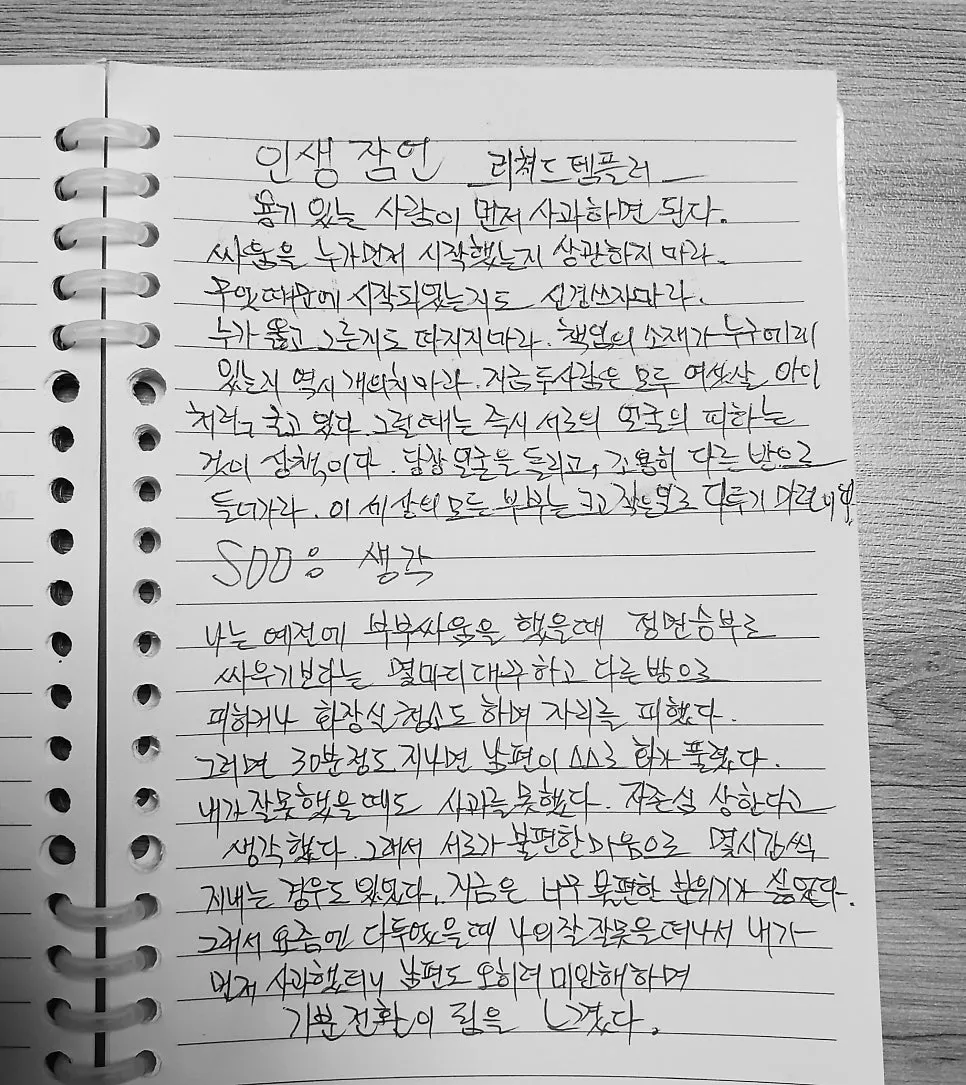 인생 잠언 리쳐드 템플러
용기 있는 사람이 먼저 사과하면 된다.
싸움을 누가먼저 시작했는지 상관하지 마라.
무엇때문에 시작되었는지도 신경쓰지마라.
누가 옳고 그른지도 따지지마라. 책임의 소재가 누구에게
있는지 역시 개의치마라. 지금 두사람은 모두 여섯살 아이
처럼 굴고 있다. 그럴때는 즉시 서로의 얼굴의 피하는
것이 상책이다. 당장 얼굴을 돌리고, 조용히 다른 방으로
들어가라. 이 세상의 모든 부부는 크고 작은일로 다투기 마련이
SOO의 생각
나는 예전에 부부싸움을 했을때 정면승부로
싸우기보다는 몇마디 대꾸하고 다른방으로
피하거나 화장실 청소도 하며 자리를 피했다.
그러면 30분정도 지나면 남편이 스스로 화가 풀렸다.
내가 잘못했을 때도 사과를 못했다. 자존심 상한다고
생각했다. 그래서 서로가 불편한 마음으로 몇시간씩
지내는 경우도 있었다. 지금은 너무 불편한 분위기가 싫었다.
그래서 요즘엔 다투었을때 나의 잘못을 떠나서 내가
먼저 사과했더니 남편도 오히려 미안해하며
기분전환이 됨을 느꼈다.